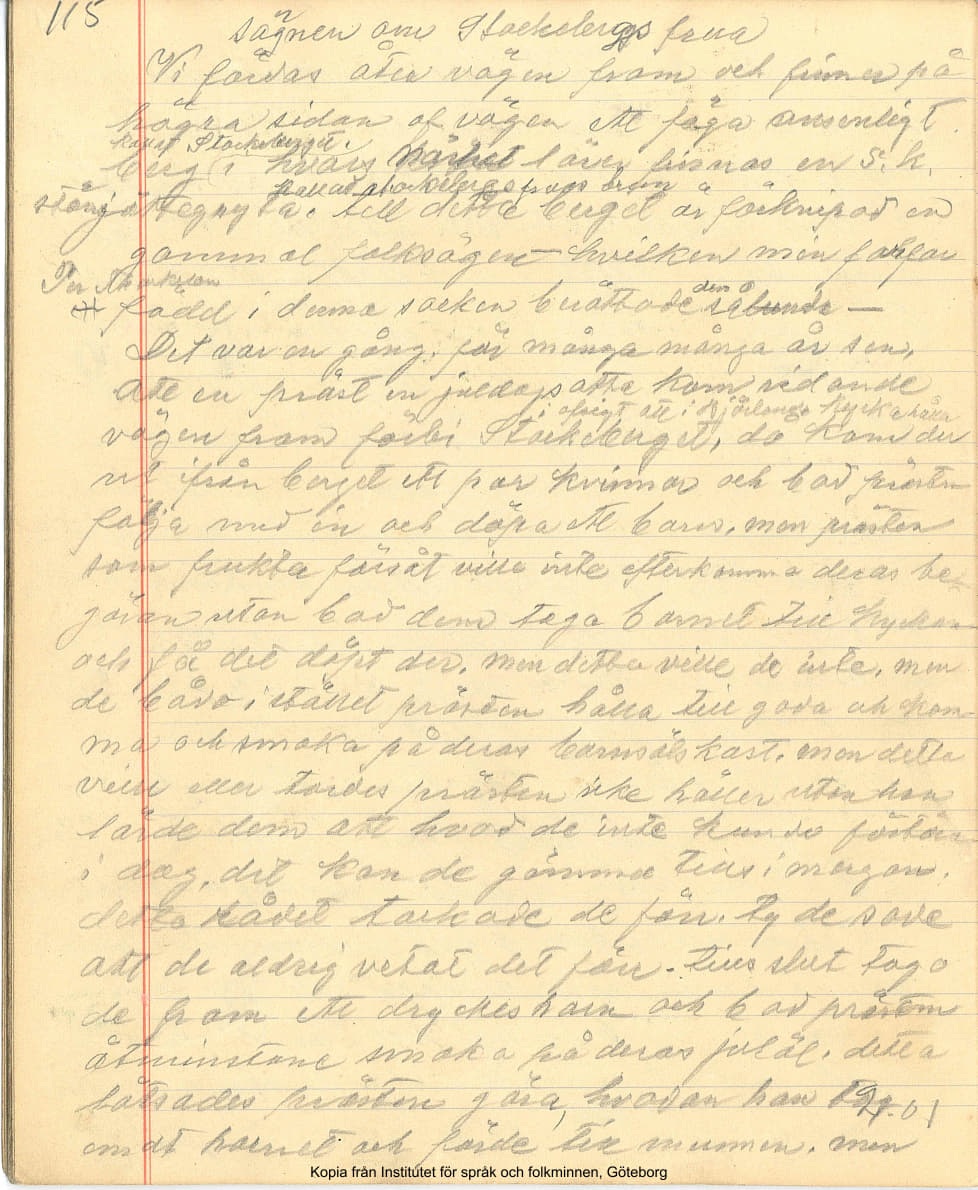 115
sägnen om Stockebergs frua
Vi färdas åter vägen fram och finner på
högra sidan af vägen ett föga ansenligt
kallat Stockeberget.
berg i hvars lärer finnas en s.k.
kallad stockebergsfruns
stång jättegryta. till detta berget är förknipad en
gammal folksägen — hvilken min farfar
Per
född i denna socken berättade den sålunda —
Det var en gång, för många många år sen,
att en präst en juldagsotta kom ridande
i afsigt att i Kyrka hålla
vägen fram förbi Stockeberget, då kom der
ut ifrån berget ett par kvinnor och bad prästen
följa med in och döpa ett barn, men prästen
som frukta försåt ville inte efterkomma deras be-
järan utan bad dem taga barnet till kyrkan
och få det döpt der, men detta ville de inte, men
de bådo i stället prästen hålla till goda och kom-
ma och smaka på deras barnsölskast. men detta
ville eller tordes prästen icke häller utan han
lärde dem att hvad de inte kunde förtära
i dag, det kan de gömma tills i morgon.
detta rådet tackade de för. ty de sade
att de aldrig vetat det förr. tills slut togo
de fram ett dryckeshorn och bad prästen
åtminstone smaka på deras julöl. detta
låtsades prästen göra, hvadan han tog
emot hornet och förde till munnen. men
Kopia från Institutet för språk och folkminnen, Göteborg